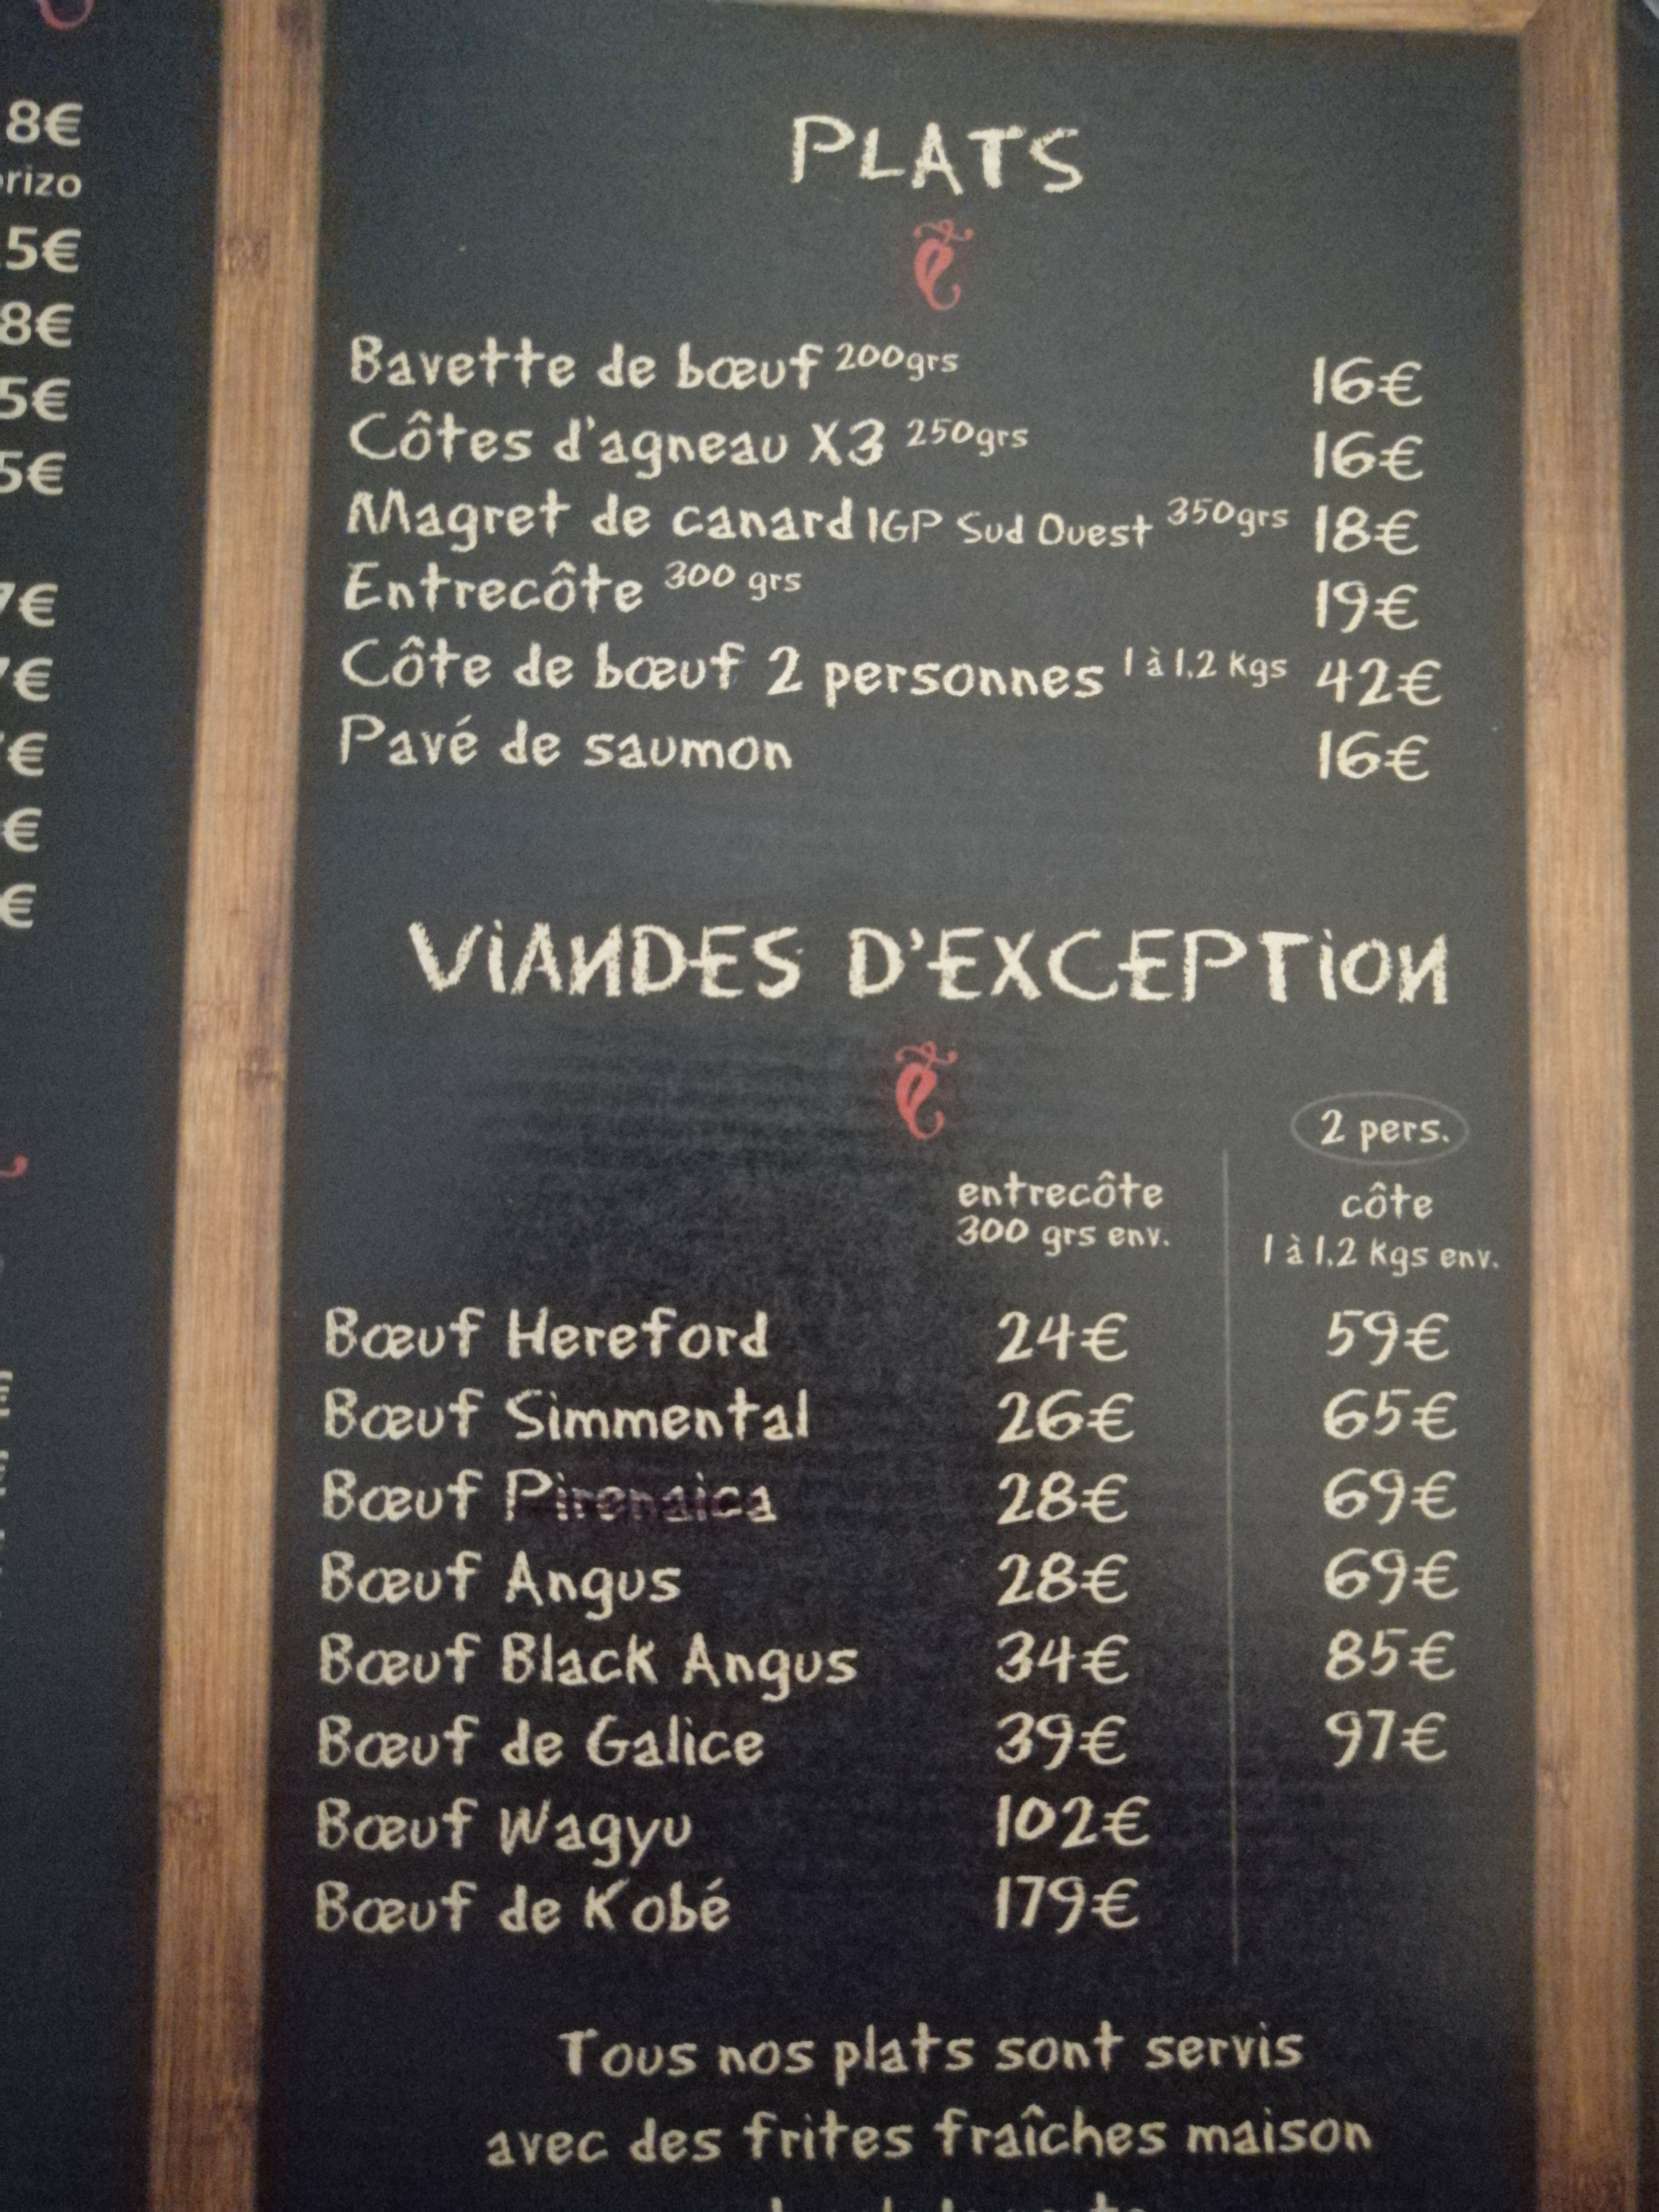 8€
rizo
5€
8€
5€
5€
7€
€
€
€
€
PLATS
Bavette de bœuf 200grs 16€
Côtes d'agneau X3 250grs 16€
Magret de canard IGP Sud Ouest 350grs 18€
Entrecôte 300 grs 19€
Côte de bœuf 2 personnes 1 à 1,2 Kgs 42€
Pavé de saumon 16€
VIANDES D'EXCEPTION
2 pers.
entrecôte côte
300 grs env. 1 à 1,2 Kgs env.
Bœuf Hereford 24€ 59€
Bœuf Simmental 26€ 65€
Bœuf Pirenaica 28€ 69€
Bœuf Angus 28€ 69€
Bœuf Black Angus 34€ 85€
Bœuf de Galice 39€ 97€
Bœuf Wagyu 102€
Bœuf de Kobé 179€
Tous nos plats sont servis
avec des frites fraîches maison